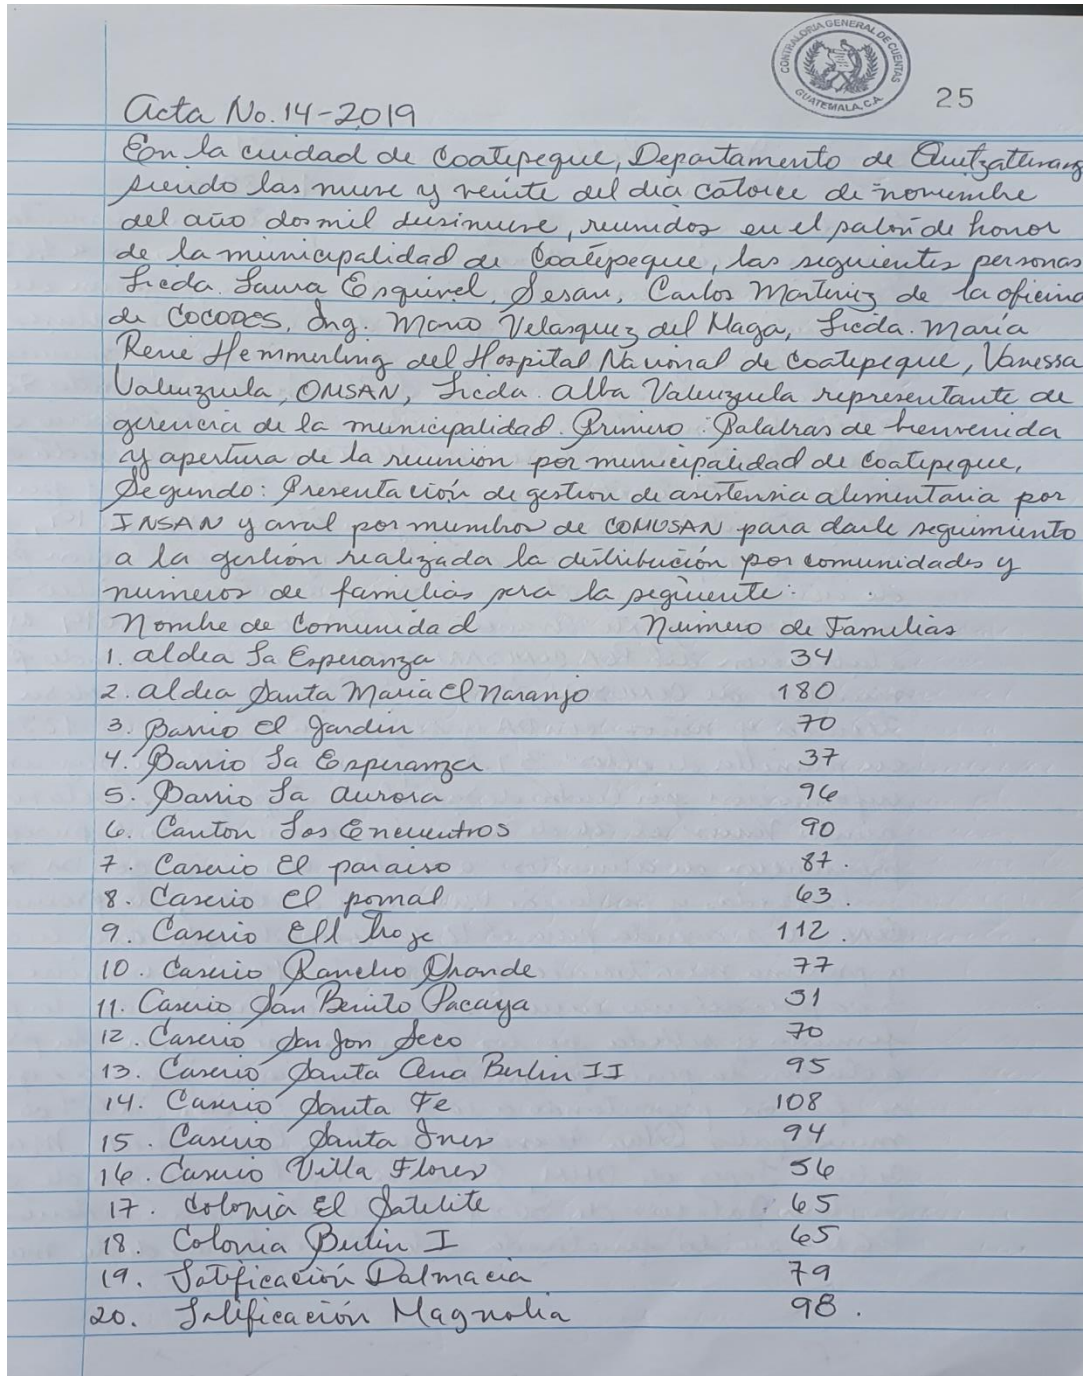 CONTRALORIA GENERAL DE CUENTAS
GUATEMALA, C.A.
25
Acta No. 14-2019
En la ciudad de Coatepeque, Departamento de Quetzaltenang
siendo las nueve y veinte del dia catorce de noviembre
del año dosmil diesinueve, reunidos en el salón de honor
de la municipalidad de Coatepeque, las siguientes personas
Licda. Laura Esquivel, Sesan, Carlos Martinez de la oficina
de COCODES, Ing. Mario Velasquez del Maga, Licda. María
René Hemmerling del Hospital Nacional de Coatepeque, Vanessa
Valenzuela, OMSAN, Licda. Alba Valenzuela representante de
gerencia de la municipalidad. Primero: Palabras de bienvenida
y apertura de la reunión por municipalidad de Coatepeque,
Segundo: Presentación de gestion de asistensia alimentaria por
INSAN y aval por miembros de COMUSAN para darle seguimiento
a la gestión realizada la distribución por comunidades y
numeros de familias sera la siguiente:
Nombre de Comunidad Número de Familias
1. aldea La Esperanza 34
2. aldea Santa Maria El Naranjo 180
3. Barrio El Jardin 70
4. Barrio La Esperanza 37
5. Barrio La Aurora 96
6. Canton Los Encuentros 90
7. Caserio El paraiso 87.
8. Caserio El pomal 63.
9. Caserio Ell Troje 112.
10. Caserio Rancho Grande 77
11. Caserio San Benito Pacaya 51
12. Caserio San Jon Seco 70
13. Caserio Santa Ana Berlin II 95
14. Caserio Santa Fe 108
15. Caserio Santa Ines 94
16. Caserio Villa Flores 56
17. Colonia El Satelite 65
18. Colonia Berlin I 65
19. Lotificación Dalmacia 79
20. Lotificación Magnolia 98.